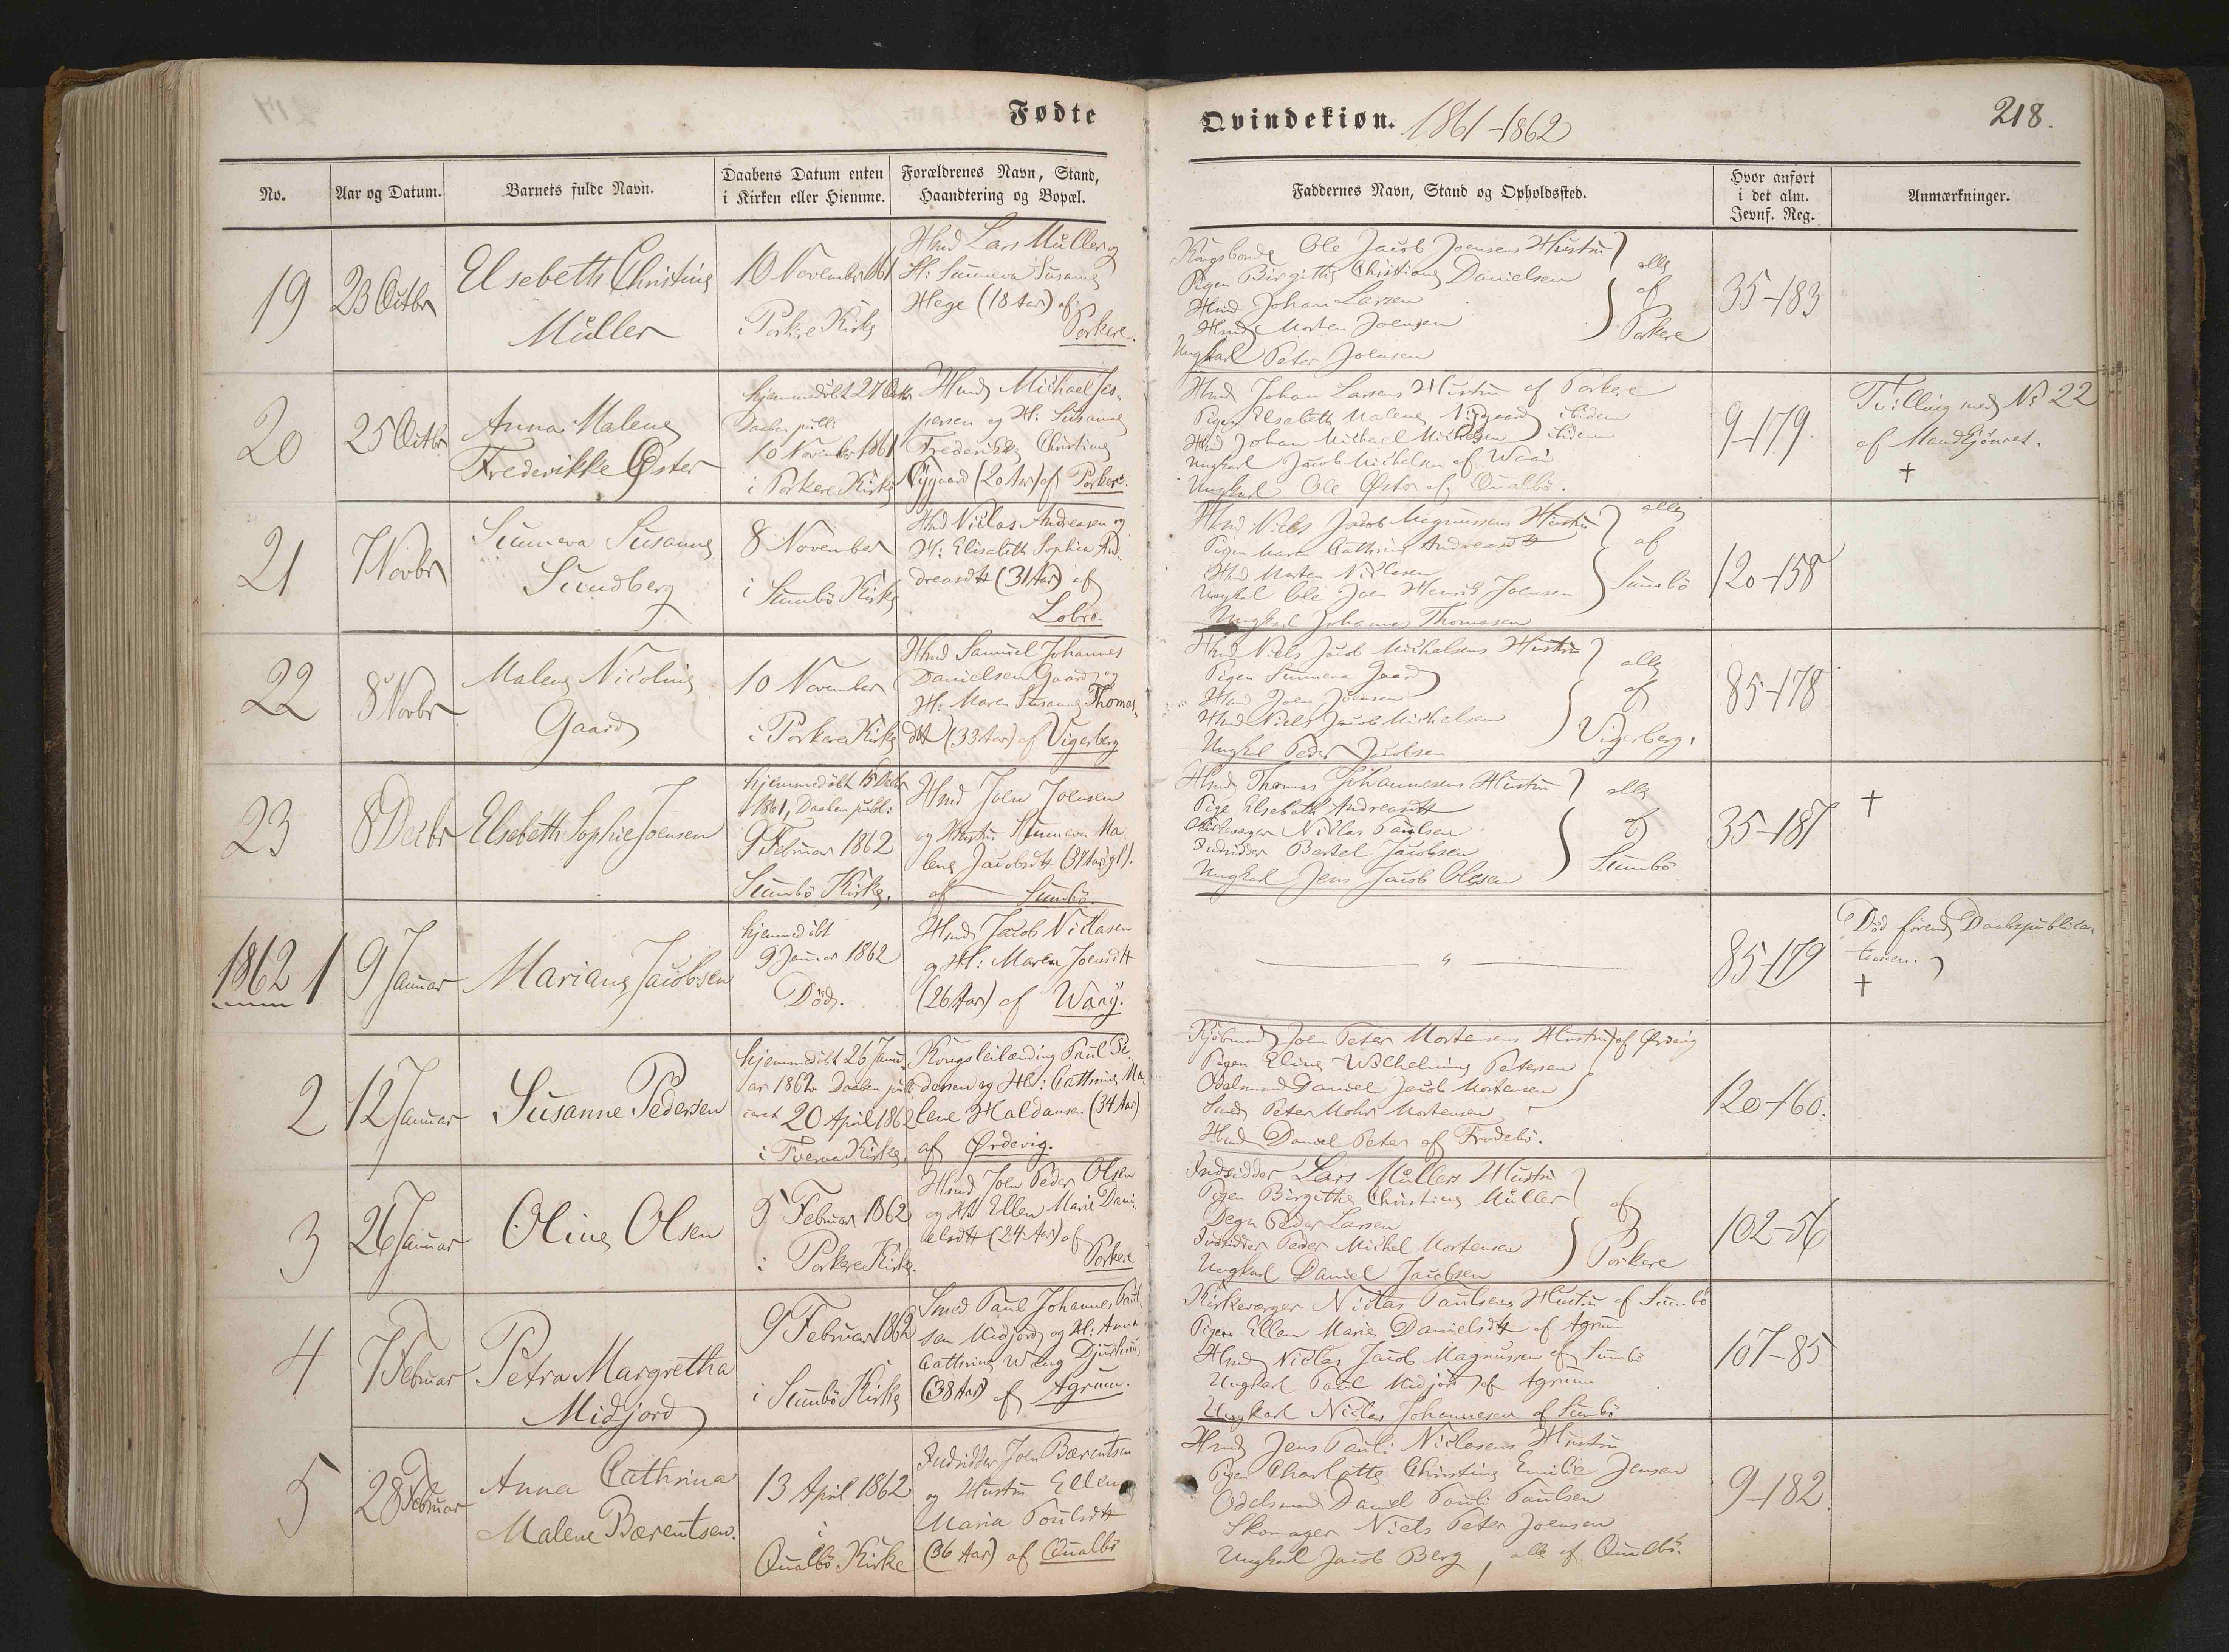 Fødte
Qvindekiøn. 1861-1862
218.
No.
Aar og Datum.
Barnets fulde Navn.
Daabens Datum enten
i Kirken eller Hiemme.
Forældrenes Navn, Stand,
Haandtering og Bopæl.
Faddernes Navn, Stand og Opholdssted.
Hvor anført
i det alm.
Jevnf. Reg.
Anmærkninger.
19
23 Octbr
Elsebeth Christine
Müller
10 November 1861
i Porkere Kirke
Hmd Lars Müller og
H: Sunneva Susanne
Hege (18 Aar) af
Porkere.
Kongsbonde Ole Jacob Joensens Hustru
Pigen Birgitte Christiane Danielsen
Hmd Johan Larsen
Hmd Morten Joensen
Ungkarl Peter Joensen
alle
af
Porkere
35-183
20
25 Octbr
Anna Malene
Frederikke Øster
hjemmedøbt 27 Octb
Daaben publ:
10 November 1861
i Porkere Kirke
Hmd Michael Jes-
persen og H: Susanne
Frederikke Christine
(20 Aar) af Porkere.
Hmd Johan Larsens Hustru af Porkere
Pigen Elsebeth Malene Nygaard ibidem
Hmd Johan Michael Michelsen ibidem
Ungkarl Jacob Michelsen af Waai
Ungkarl Ole Øster af Qualbø.
9-179.
Tvilling med No 22
af Mandkjønnet.
+
21
7 Novbr
Sunneva Susanne
Sundberg
8 November
i Sumbø Kirke
Hmd Niclas Andreasen og
H: Elisabeth Sophia An-
dreasdtt (31 Aar) af
Lobra
Hmd Niels Jacob Magnussens Hustru
Pigen Maren Cathrine Andreasdtt
Hmd Morten Niclasen
Ungkarl Ole Joen Henrik Joensen
Ungkarl Johannes Thomasen
alle
af
Sumbø
120-158
22
8 Novbr
Malene Nicoline
Gaard
10 November
i Porkere Kirke
Hmd Samuel Johannes
Danielsen Gaard og
H: Maren Susanne Thomas-
dtt (33 Aar) af Vigerberg
Hmd Niels Jacob Michelsens Hustru
Pigen Sunneva Gaard
Hmd Joen Joensen
Hmd Niels Jacob Michelsen
Ungkarl Peder Jacobsen
alle
af
Vigerberg.
85-178
23
8 Decbr
Elsebeth Sophie Joensen
hjemmedøbt 15 Decbr
1861, Daaben publ:
9 Februar 1862
Sumbø Kirke.
Hmd Joen Joensen
og Hustru Sunneva Ma-
lene Jacobsdtt (37 Aar gl).
af Sumbø.
Hmd Thomas Johannesens Hustru
Pige Elsebeth Andreasdtt
Kirkeværger Niclas Paulsen
Indsidder Bertel Jacobsen
Ungkarl Jens Jacob Olesen
alle
af
Sumbø
35-181
+
1862 1
9 Januar
Mariane Jacobsen
hjemmedøbt
9 Januar 1862
Død.
Hmd Jacob Niclasen
og H: Maren Joensdtt
(26 Aar) af Waag.
"
85-179
Død førend Daabspublica-
tionen.
+
2
12 Januar
Susanne Pedersen
hjemmedøbt 26 Janu-
ar 1862 Daaben publi-
ceret 20 April 1862
i Tveraa Kirke.
Kongsleilænding Paul Pe-
dersen og H: Cathrine Ma-
lene Haldansen (34 Aar)
af Ørdevig.
Kjøbmand Joen Peter Mortensens Hustru af Ørdevig
Pigen Eline Wilhelmine Petersen
Odelsmand Daniel Jacob Mortensen
Smed Peter Mohr Mortensen
Hmd Daniel Peter af Frodebø.
120-160.
3
26 Januar
Oline Olsen
9 Februar 1862
i Porkere Kirke.
Hmd Joen Peder Olsen
og H: Ellen Marie Dani-
elsdtt (24 Aar) af
Porkere
Indsidder Lars Müllers Hustru
Pigen Birgithe Christine Müller
Degn Peder Larsen
Indsidder Peder Michel Mortensen
Ungkarl Daniel Jacobsen
af
Porkere
102-56
4
7 Februar
Petra Margretha
Midjord
9 Februar 1862
i Sumbø Kirke
Smed Paul Johannes Paul-
sen Midjord og H: Anna
Cathrine Wang Djurhuus
(38 Aar) af Agrum.
Kirkeværger Niclas Paulsens Hustru af Sumbø
Pigen Ellen Marie Danielsdtt af Agrum
Hmd Niclas Jacob Magnussen af Sumbø
Ungkarl Paul Midjord af Agrum
Ungkarl Niclas Johannesen af Sumbø
107-85
5
28 Februar
Anna Cathrina
Malene Bærentsen.
13 April 1862
i
Qualbø Kirke
Indsidder Joen Bærentsen
og Hustru Ellen
Maria Poulsdtt
(36 Aar) af Qualbø
Hmd Jens Pauli Niclasens Hustru
Pigen Charlotte Christine Emilie Jensen
Odelsmand Daniel Pauli Paulsen
Skomager Niels Peter Joensen
Ungkarl Jacob Berg, alle af Qualbø.
9-182.